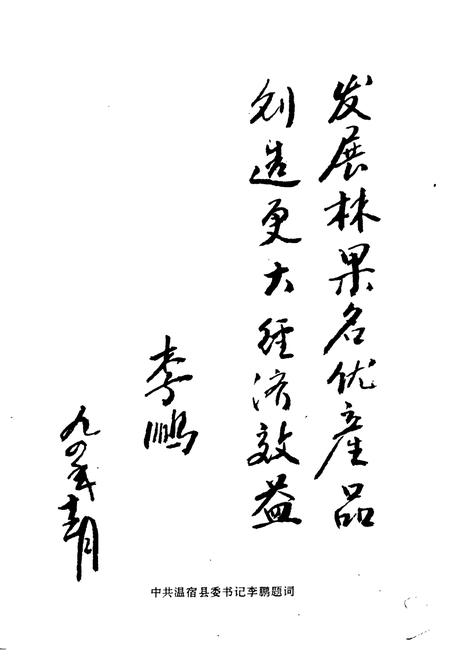 发展林果名优產品
创造更大经济效益
李鹏
九四年十一月
中共温宿县委书记李鹏题词